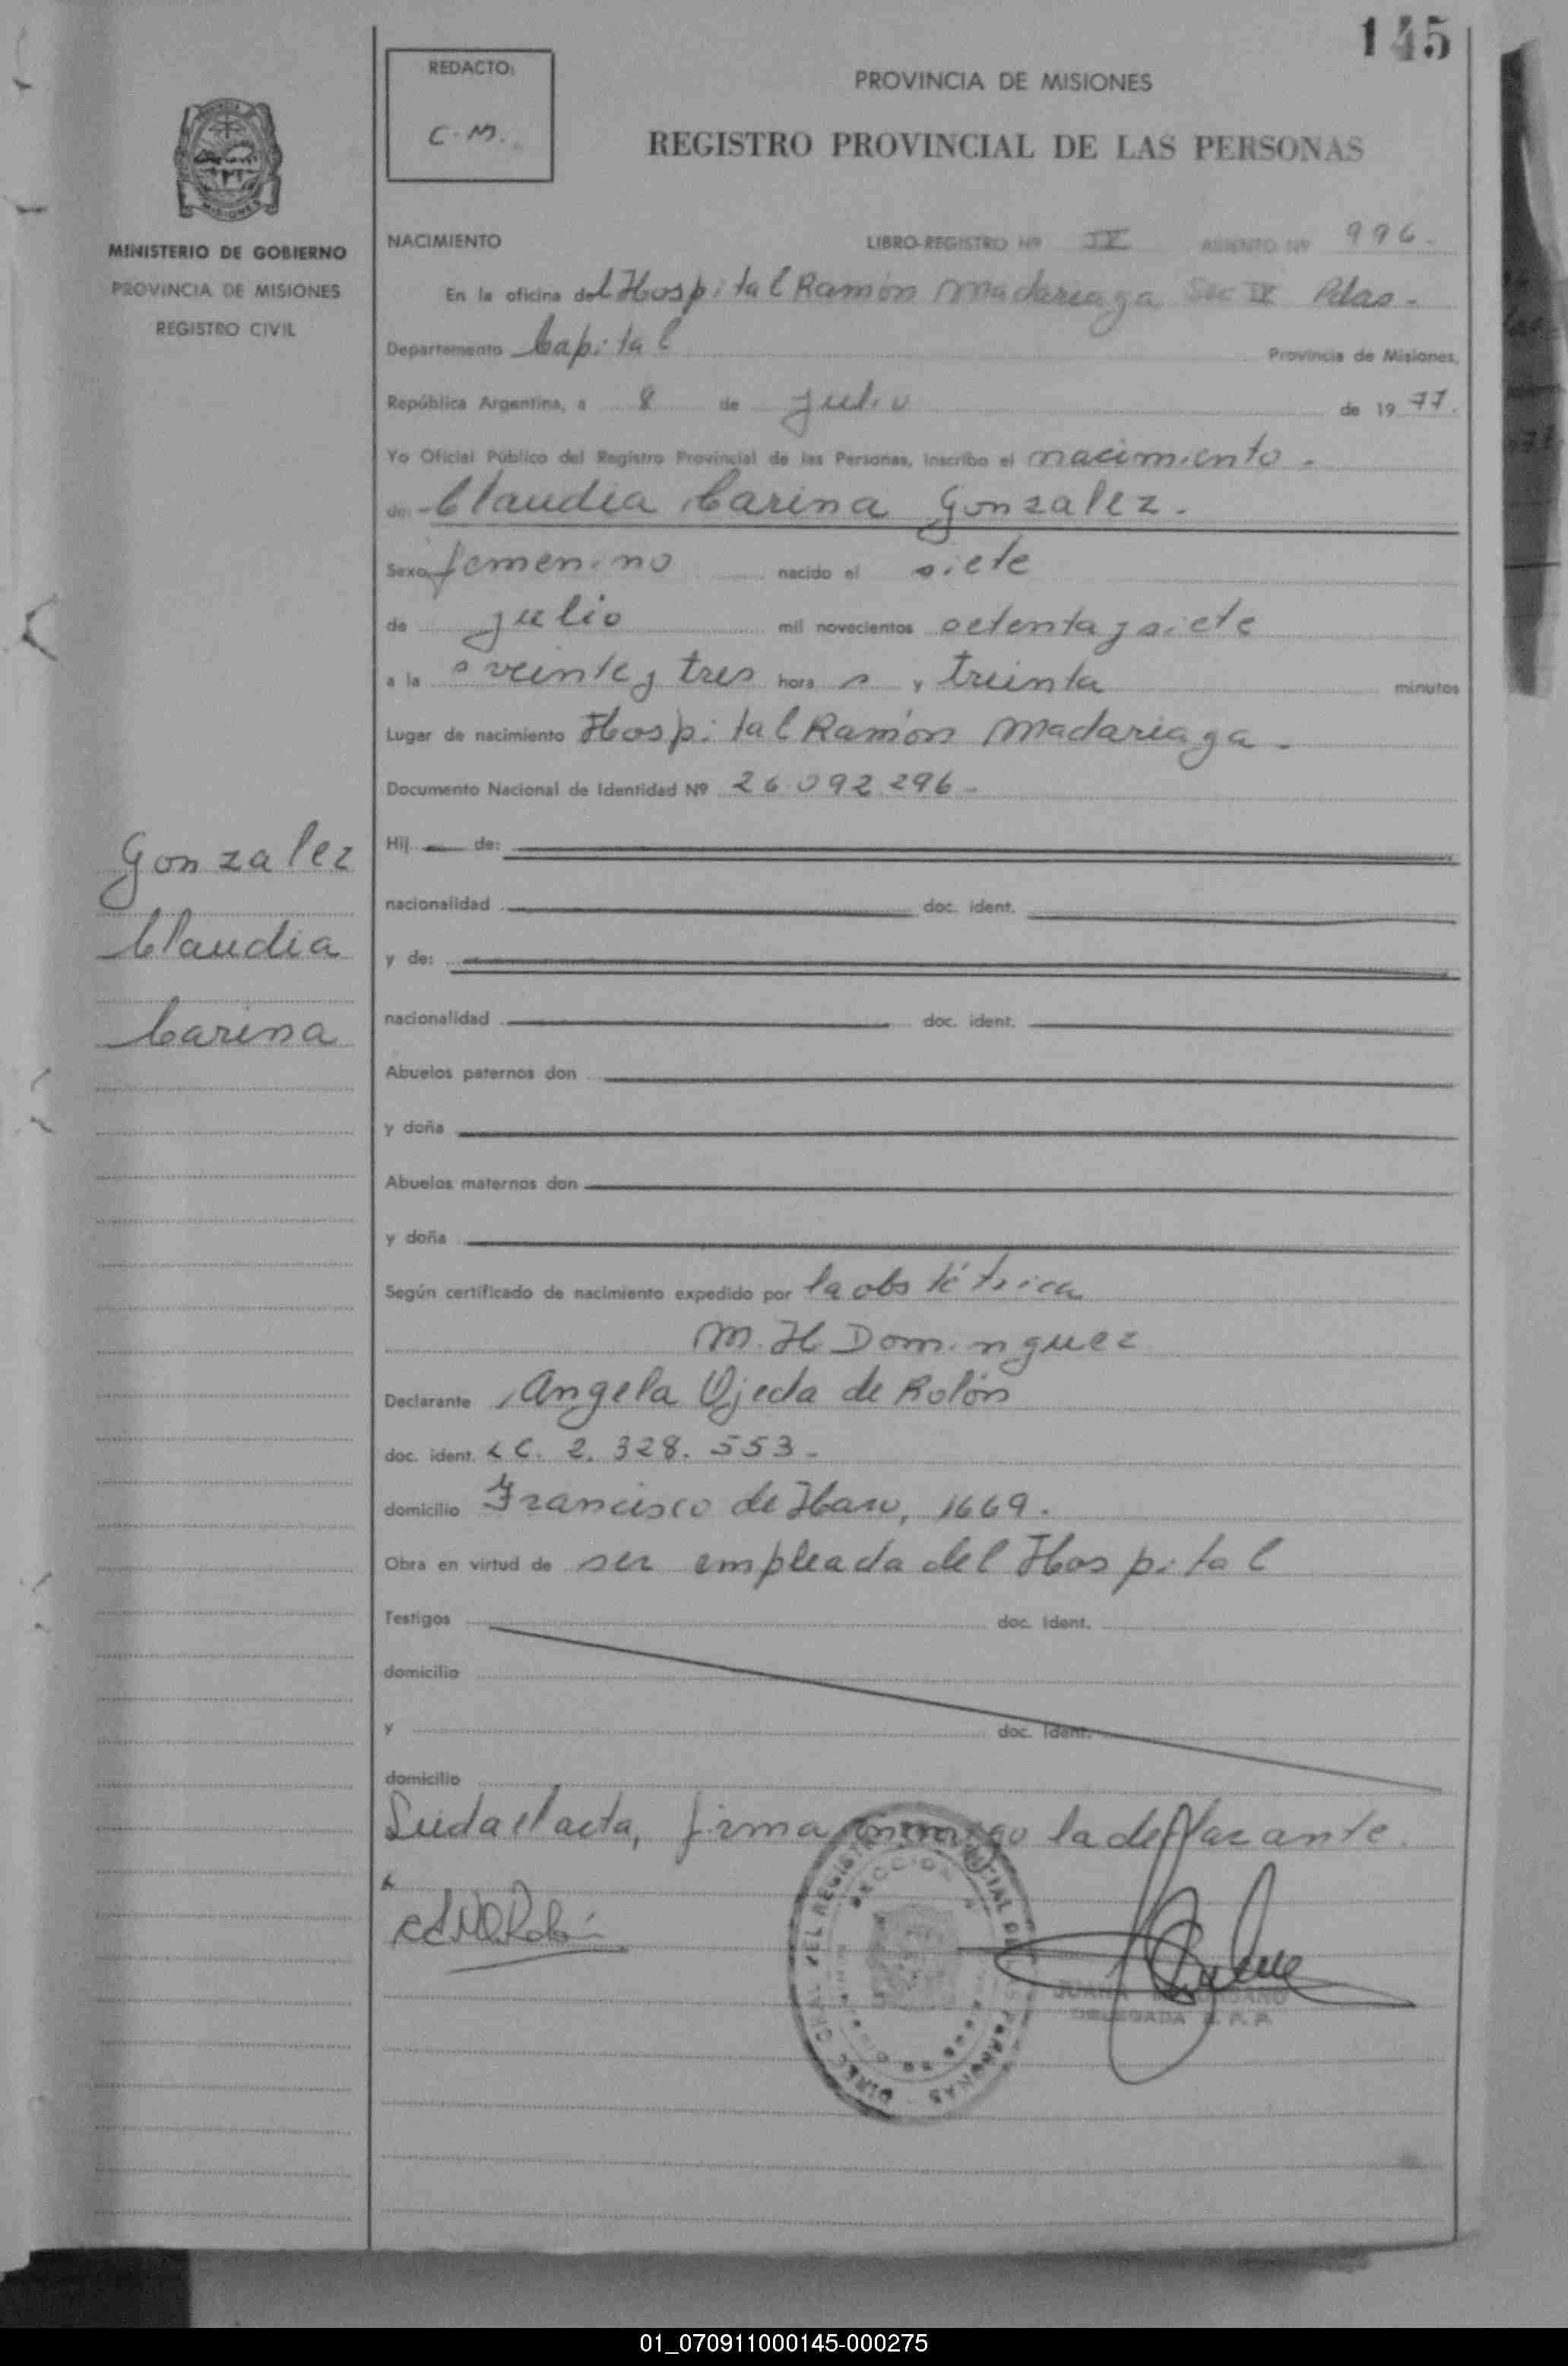 145
REDACTO:
C. M.
PROVINCIA DE MISIONES
REGISTRO PROVINCIAL DE LAS PERSONAS
MISIONES
MINISTERIO DE GOBIERNO
PROVINCIA DE MISIONES
REGISTRO CIVIL
NACIMIENTO LIBRO-REGISTRO Nº IV ASIENTO Nº 996.
En la oficina del Hospital Ramón Madariaga Sec IV Pdas.
Departamento Capital Provincia de Misiones,
República Argentina, a 8 de julio de 1977.
Yo Oficial Público del Registro Provincial de las Personas, inscribo el nacimiento.
de Claudia Carina Gonzalez.
Sexo femenino nacido el siete
de julio mil novecientos setenta y siete
a la s veinte y tres hora s y treinta minutos
Lugar de nacimiento Hospital Ramón Madariaga.
Documento Nacional de Identidad Nº 26.092.296-
Gonzalez
Claudia
Carina
Hij de:
nacionalidad doc. ident.
y de:
nacionalidad doc. ident.
Abuelos paternos don
y doña
Abuelos maternos don
y doña
Según certificado de nacimiento expedido por la obstétrica
M. H Dominguez
Declarante Angela Ojeda de Rolón
doc. ident. LC. 2.328.553-
domicilio Francisco de Haro, 1669.
Obra en virtud de ser empleada del Hospital
Testigos doc. Ident.
domicilio
y doc. Ident.
domicilio
Leida el acta, firma conmigo la declarante.
JUANA
DELEGADA R. P. P.
01_070911000145-000275